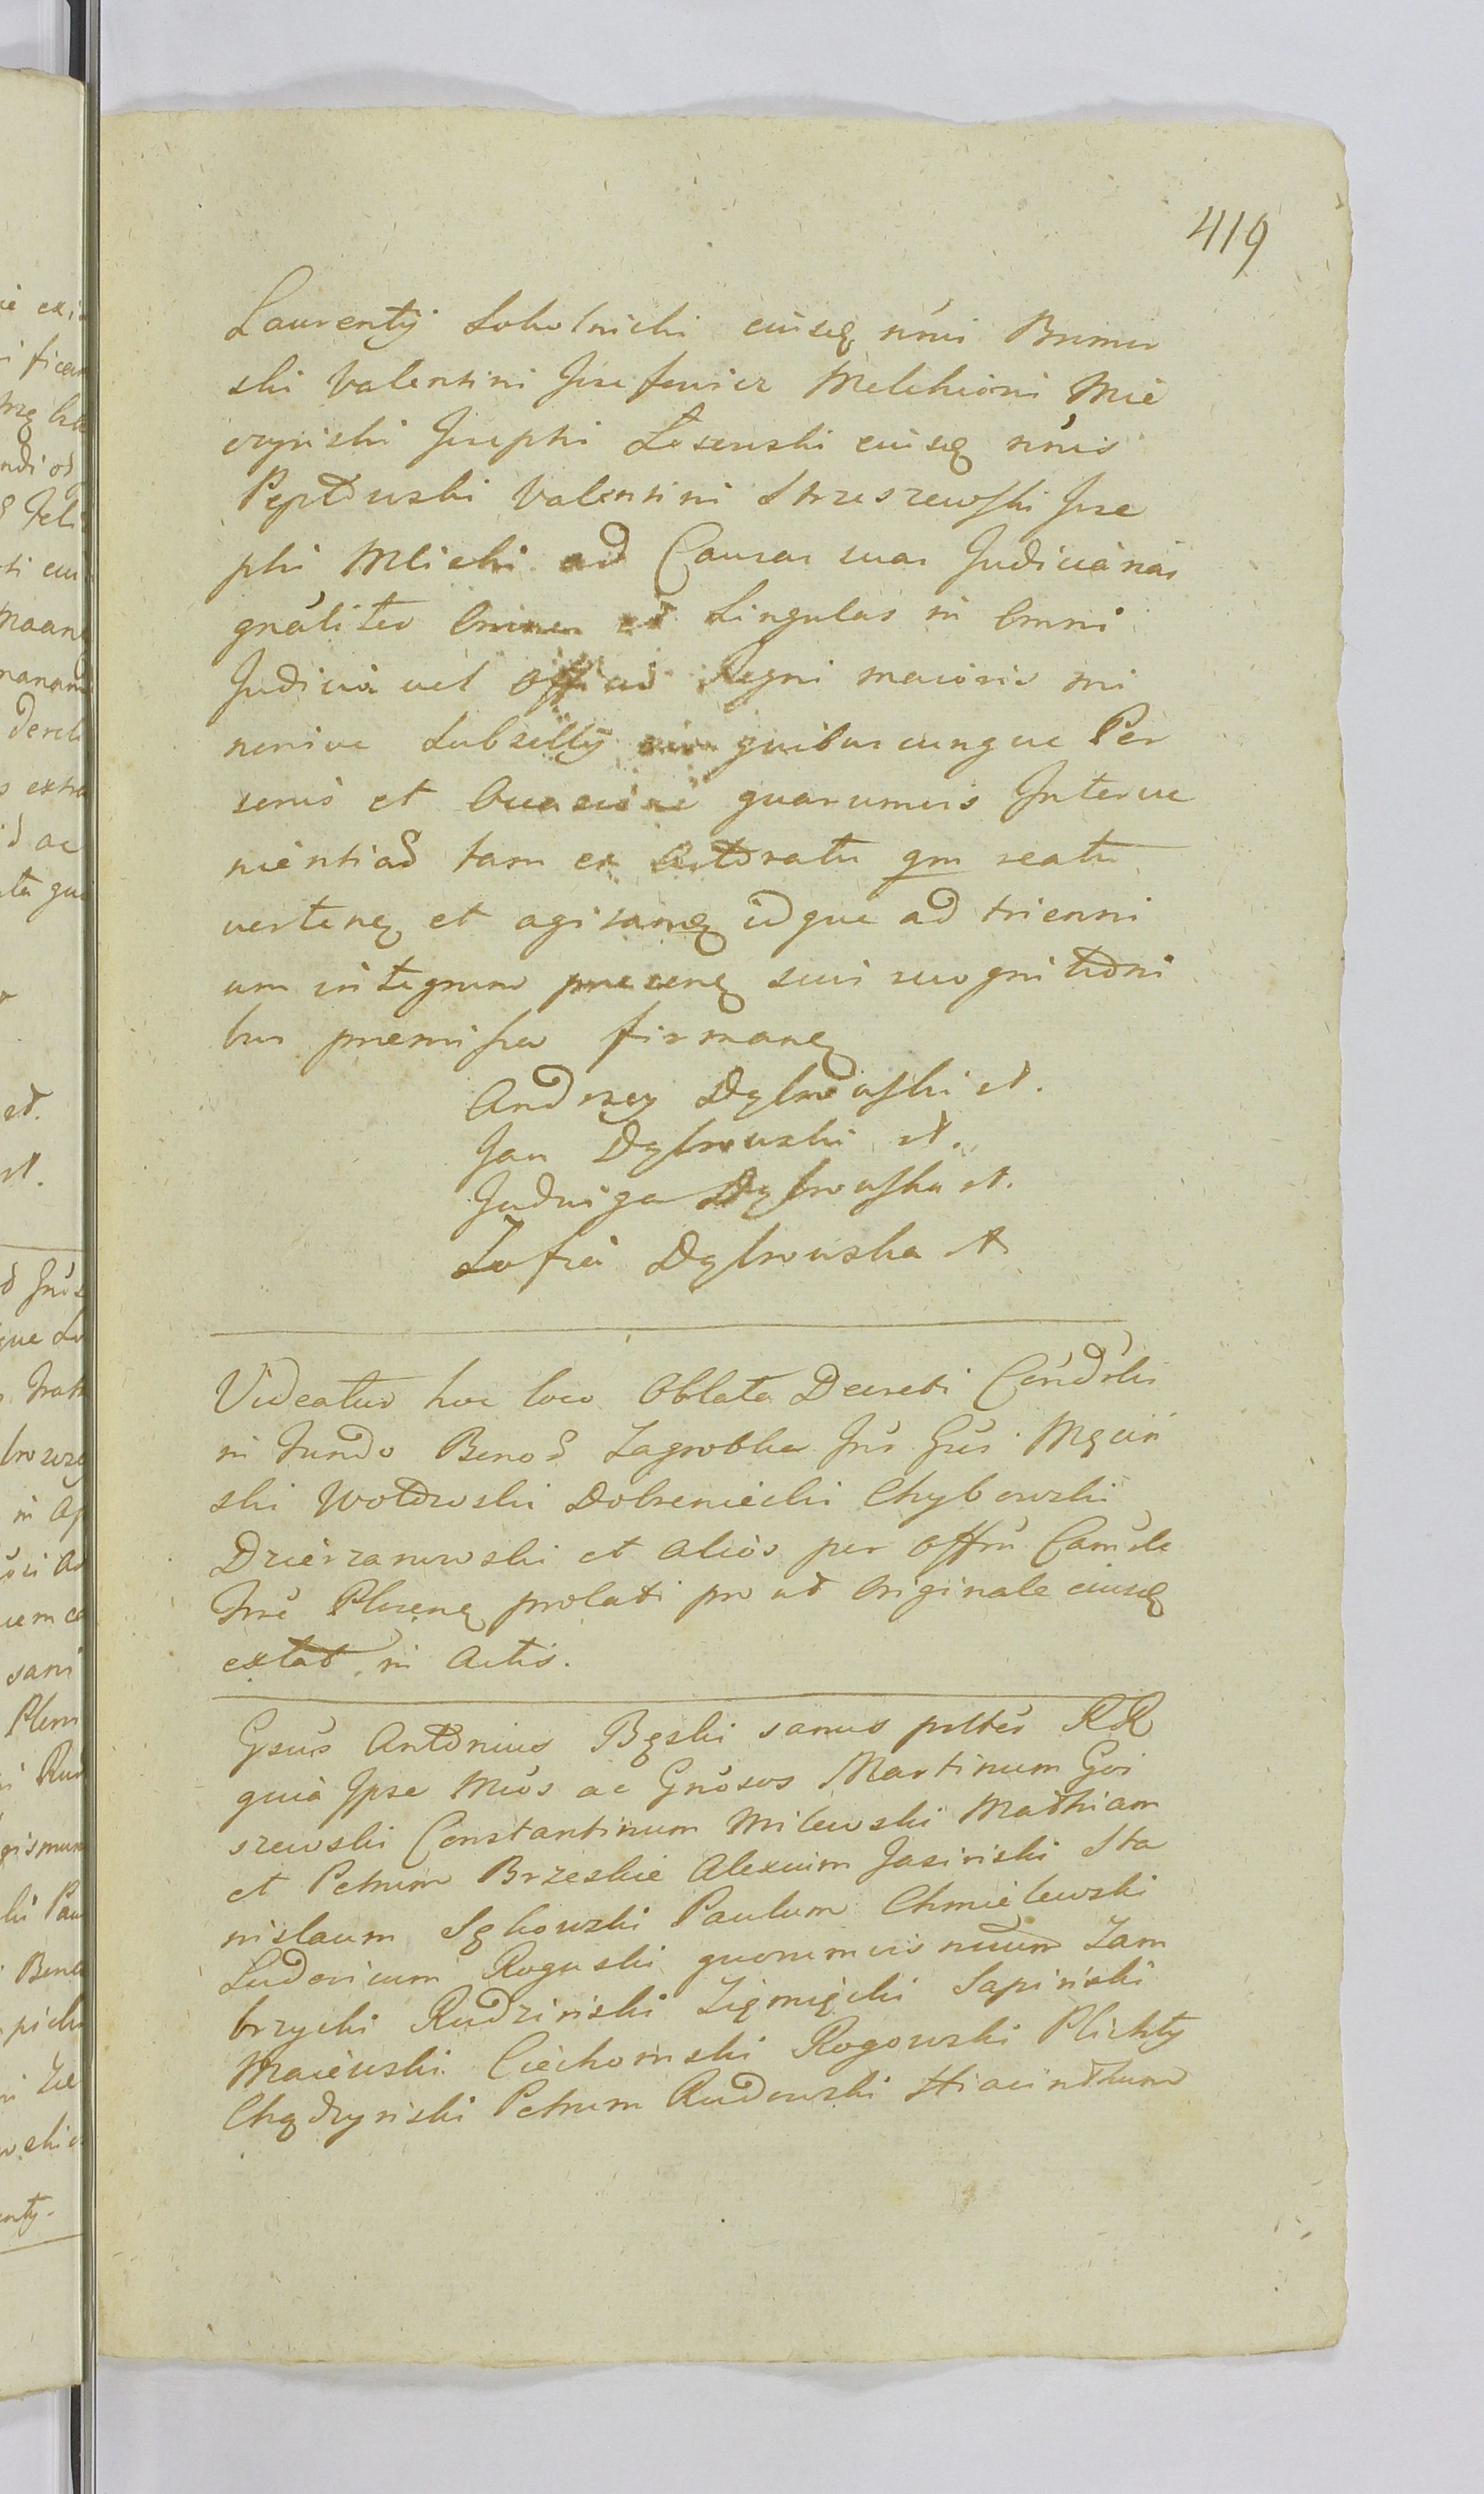 419
Laurentÿ Sokolnicki eiusq nn̄is Bromir
ski Valentini Josefowicz Melchioris Mie
czynski Josephi Losewski eiusq nn̄is
Peptowski Valentini Strzeszewski Jose
phi Mlicki ad Causas suas Judiciarias
gn̄aliter Omnes et Singulas in Omni
Judicio vel officio Regni maioris mi
norisve Subsellÿ cum quibuscunque Per
sonis et Occasione quarumvis Interve
nientiad tam ex Actoratu qm reatu
verteng et agitang idque ad trienni
um integrum preseng sui recognitioni
bus premissa firmang
Andrzey Dąbrowski et.
Jan Dąbrowski et.
Jadwiga Dąbrowska et.
Zofia Dąbrowska et
Videatur hoc loco Oblata Decreti Condrlis
in fundo Bonod Zagroblia Jn̄r Gn̄s Męciń
ski Wolowski Dobrzeniecki Chybowski
Dzierzanowski et alios per offm Cam̄ele
Trr̄e Ploceng prolati pro ut Originale eiusq
extat in Actis.
Gn̄sus Antonius Bęski sanus prltēr RR
quia Ipse Mcos ac Gn̄osos Martinum Goi
szewski Constantinum Milewski Mathiam
et Petrum Brzeskie Alexium Jasinski Sta
nislaum Sękowski Paulum Chmielewski
Ludovicum Roguski quorumvis nnum Zam
brzycki Rudzinski Ziemięcki Sapinski
Maiewski Ciechomski Rogowski Plichty
Chądzynski Petrum Rudowski Hiacinthum